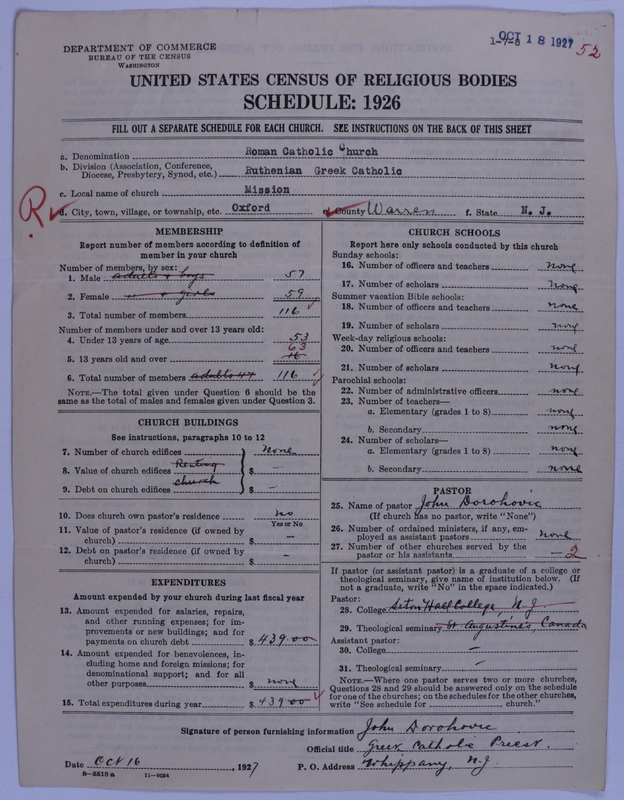 OCT 18 1927
1-7-6
52
DEPARTMENT OF COMMERCE
BUREAU OF THE CENSUS
WASHINGTON
UNITED STATES CENSUS OF RELIGIOUS BODIES
SCHEDULE: 1926
FILL OUT A SEPARATE SCHEDULE FOR EACH CHURCH. SEE INSTRUCTIONS ON THE BACK OF THIS SHEET
a. Denomination Roman Catholic Church
b. Division (Association, Conference, Diocese, Presbytery, Synod, etc.) Ruthenian Greek Catholic
c. Local name of church Mission
R
d. City, town, village, or township, etc. Oxford e. County Warren f. State N. J.
MEMBERSHIP
Report number of members according to definition of
member in your church
Number of members, by sex:
1. Male adults + boys 57
2. Female " + girls 59
3. Total number of members 116
Number of members under and over 13 years old:
4. Under 13 years of age 53
5. 13 years old and over 63
6. Total number of members adults 47 116
NOTE.—The total given under Question 6 should be
same as the total of males and females given under Question 3.
CHURCH BUILDINGS
See instructions, paragraphs 10 to 12
7. Number of church edifices None
8. Value of church edifices Renting $ —
9. Debt on church edifices church $ —
10. Does church own pastor's residence no
Yes or No
11. Value of pastor's residence (if owned by
church) $ —
12. Debt on pastor's residence (if owned by
church) $ —
EXPENDITURES
Amount expended by your church during last fiscal year
13. Amount expended for salaries, repairs,
and other running expenses; for im-
provements or new buildings; and for
payments on church debt $ 439.00
14. Amount expended for benevolences, in-
cluding home and foreign missions; for
denominational support; and for all
other purposes $ none
15. Total expenditures during year $ 439.00
CHURCH SCHOOLS
Report here only schools conducted by this church
Sunday schools:
16. Number of officers and teachers none
17. Number of scholars none
Summer vacation Bible schools:
18. Number of officers and teachers none
19. Number of scholars none
Week-day religious schools:
20. Number of officers and teachers none
21. Number of scholars none
Parochial schools:
22. Number of administrative officers none
23. Number of teachers—
a. Elementary (grades 1 to 8) none
b. Secondary none
24. Number of scholars—
a. Elementary (grades 1 to 8) none
b. Secondary none
PASTOR
25. Name of pastor John Dorohovic
(If church has no pastor, write "None")
26. Number of ordained ministers, if any, em-
ployed as assistant pastors none
27. Number of other churches served by the
pastor or his assistants — 2
If pastor (or assistant pastor) is a graduate of a college or
theological seminary, give name of institution below. (If
not a graduate, write "No" in the space indicated.)
Pastor:
28. College Seton Hall College, N. J.
29. Theological seminary St Augustine's, Canada
Assistant pastor:
30. College —
31. Theological seminary —
NOTE.—Where one pastor serves two or more churches,
Questions 28 and 29 should be answered only on the schedule
for one of the churches; on the schedules for the other churches,
write "See schedule for church."
Signature of person furnishing information John Dorohovic
Official title Greek Catholic Priest.
Date Oct 16, 1927 P. O. Address Whippany, N. J.
8—5518 a 11—9084